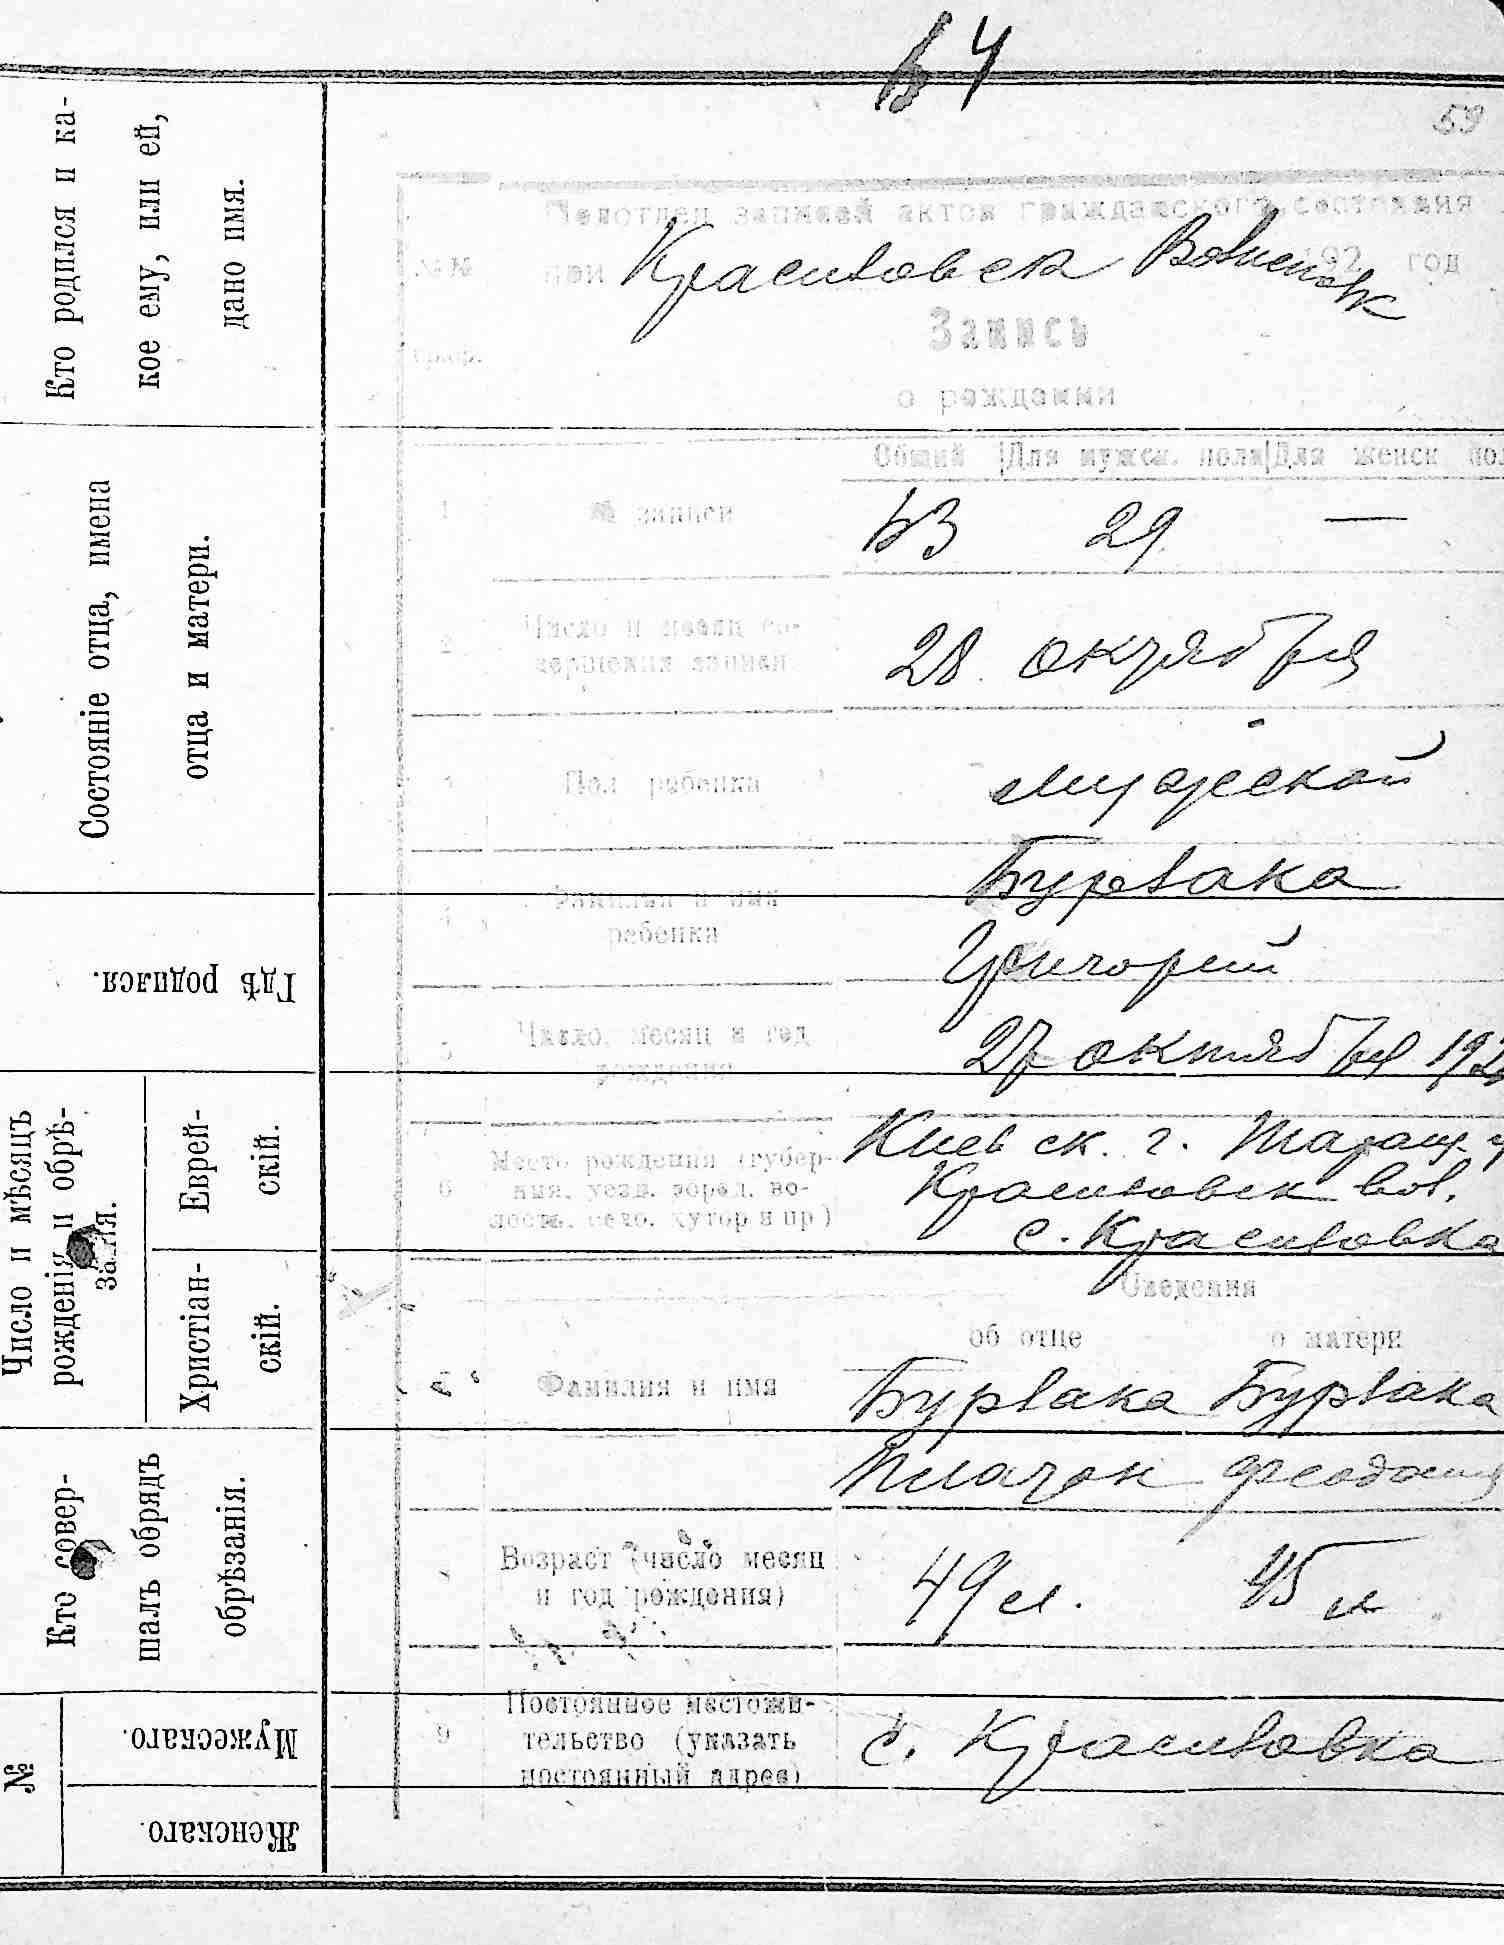 59
Кто родился и ка-
кое ему, или ей,
дано имя.
Состояніе отца, имена
отца и матери.
Гдѣ родился.
Число и мѣсяцъ
рожденія и обрѣ-
занія.
Еврей-
скій.
Христіан-
скій.
Кто совер-
шалъ обрядъ
обрѣзанія.
№
Мужескаго.
Женскаго.
Подотдел записей актов гражданского состояния
№№ при 192 год
Запись
о рождении
Общий Для мужск. пола Для женск пол
1 № записи 29 —
2 Число и месяц со-
вершения записи 28 октября
Пол ребенка мужской
Бурвака
4 Фамилия и имя
ребенка Григорий
5 Число, месяц и год
рождения 27 октября 192
6 Место рождения (губер-
ния, уезд, город, во-
лость, село, хутор и пр) Киевск. г. Таращ. у
вол.
с.
Сведения
об отце о матери
Фамилия и имя Бурвака Бурвака
Феодосия
8 Возраст (число месяц
и год рождения) 49 л. 45 л
9 Постоянное местожи-
тельство (указать
постоянный адрес) с.